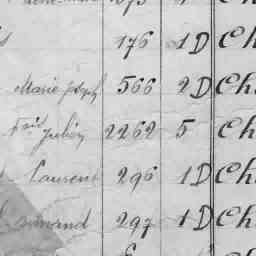 176 1D Ch
Marie Joseph 566 2D Ch
Julien 2262 5 Ch
Laurent 296 1D Ch
297 1D Ch